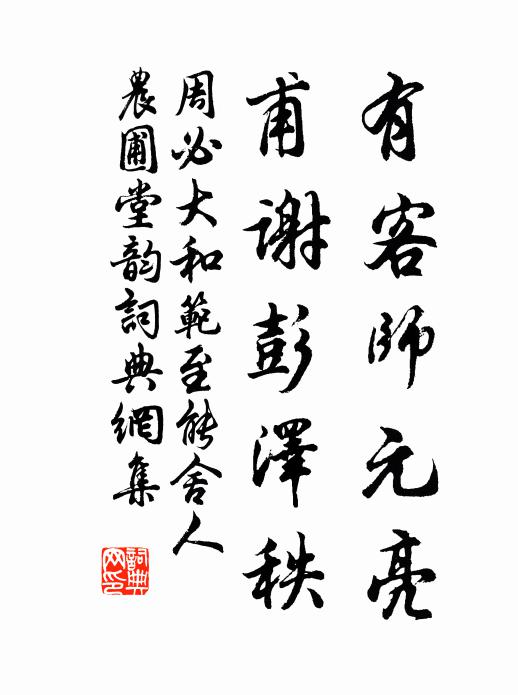 有客師元亮
甫謝彭澤秩
周必大和範至能舍人
農圃堂韵詞典網集
詞典網印